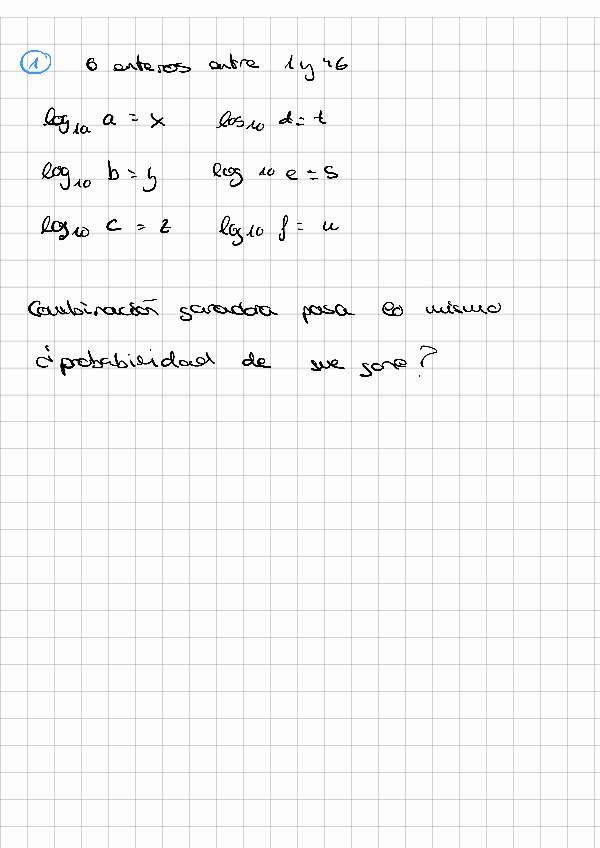 1 6 enteros entre 1 y 46
log10 a = x log10 d = t
log10 b = y log 10 e = s
log10 c = z log10 f = u
Combinación ganadora pasa lo mismo
¿probabilidad de que gane?